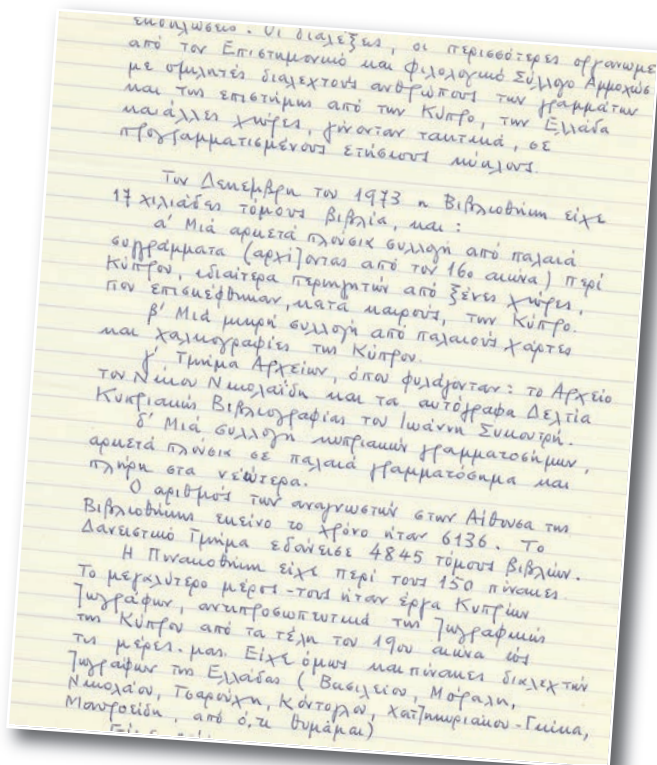 εκδηλώσεις. Οι διαλέξεις, οι περισσότερες οργανωμε
από τον Επιστημονικό και Φιλολογικό Σύλλογο Αμμοχώσ
με ομιλητές διαλεχτούς ανθρώπους των γραμμάτων
και της επιστήμης από την Κύπρο, την Ελλάδα
και άλλες χώρες, γίνονταν ταχτικά, σε
προγραμματισμένους ετήσιους κύκλους.
Τον Δεκέμβρη του 1973 η Βιβλιοθήκη είχε
17 χιλιάδες τόμους βιβλία, και:
α' Μιά αρκετά πλούσια συλλογή από παλαιά
συγγράμματα (αρχίζοντας από τον 16ο αιώνα) περί
Κύπρου, ιδιαίτερα περιηγητών από ξένες χώρες,
που επισκέφθηκαν, κατά καιρούς, την Κύπρο.
β' Μιά μικρή συλλογή από παλαιούς χάρτες
και χαλκογραφίες της Κύπρου.
γ' Τμήμα Αρχείων, όπου φυλάγονταν: το Αρχείο
του Νίκου Νικολαΐδη και τα αυτόγραφα Δελτία
Κυπριακής Βιβλιογραφίας του Ιωάννη Συκουτρή.
δ' Μιά συλλογή κυπριακών γραμματοσήμων,
αρκετά πλούσια σε παλαιά γραμματόσημα και
πλήρη στα νεώτερα.
Ο αριθμός των αναγνωστών στην Αίθουσα της
Βιβλιοθήκης εκείνο το χρόνο ήταν 6136. Το
Δανειστικό Τμήμα εδάνεισε 4845 τόμους βιβλίων.
Η Πινακοθήκη είχε περί τους 150 πίνακες.
Το μεγαλύτερο μέρος-τους ήταν έργα Κυπρίων
ζωγράφων, αντιπροσωπευτικά της ζωγραφικής
της Κύπρου από τα τέλη του 19ου αιώνα ώς
τις μέρες-μας. Είχε όμως και πίνακες διαλεχτών
ζωγράφων της Ελλάδας (Βασιλείου, Μόραλη,
Νικολάου, Τσαρούχη, Κόντογλου, Χατζηκυριάκου-Γκίκα,
Μαυροΐδη, από ό,τι θυμάμαι)